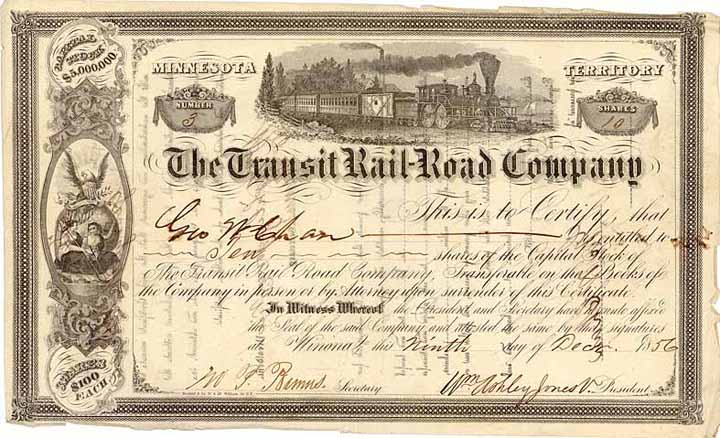 CAPITAL
STOCK
$5,000,000.
MINNESOTA
TERRITORY
NUMBER
3
SHARES
10
The Transit Rail-Road Company
This is to Certify, that
Geo W is entitled to
Ten shares of the Capital Stock of
The Transit Rail Road Company, Transferable on the Books of
the Company in person or by Attorney upon surrender of this Certificate.
In Witness Whereof the President and Secretary have hereunto affixed
the Seal of the said Company and attested the same by their signatures
at Winona the Ninth day of Decr. 1856
Secretary
Wm Ashley Jones V. President
SHARES
$100
EACH